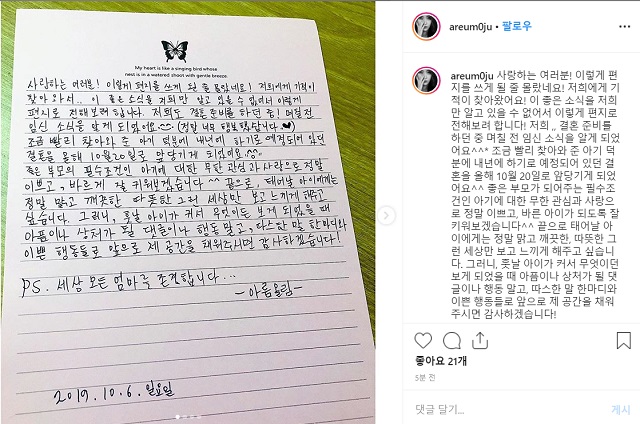 My heart is like a singing bird whose
nest is in a watered shoot with gentle breeze.
사랑하는 여러분! 이렇게 편지를 쓰게 될 줄 몰랐네요! 저희에게 기적이
찾아와서.. 이 좋은 소식을 저희만 알고 있을 수 없어서 이렇게
편지로 전해보려 합니다. 저희도 결혼 준비를 하던 중! 며칠전
임신 소식을 알게 되었어요
조금 빨리 찾아와 준 아기 덕분에 내년에 하기로 예정되어 있던
결혼을 올해 10월20일로 앞당기게 되었어요.
좋은 부모의 필수조건인 아기에 대한 무한 관심과 사랑으로 정말
이쁘고, 바르게 잘 키워보겠습니다^^ 끝으로, 태어날 아이에게는
정말 맑고 깨끗한 따뜻한 그런 세상만 보고 느끼게 해주고
싶습니다. 그러니, 훗날 아이가 커서 무엇이든 보게 되었을 때
아픔이나 상처가 될 댓글이나 행동 말고, 따스한 말 한마디와
이쁜 행동들로 앞으로 제 공간을 채워주시면 감사하겠습니다!
P.S. 세상 모든 엄마를 존경합니다...
-아름올림-
2019. 10. 6. 일요일
areum0ju • 팔로우
areum0ju 사랑하는 여러분! 이렇게 편
지를 쓰게 될 줄 몰랐네요! 저희에게 기
적이 찾아왔어요! 이 좋은 소식을 저희만
알고 있을 수 없어서 이렇게 편지로
전해보려 합니다! 저희 ,, 결혼 준비를
하던 중 며칠 전 임신 소식을 알게 되었
어요^^* 조금 빨리 찾아와 준 아기 덕
분에 내년에 하기로 예정되어 있던 결
혼을 올해 10월 20일로 앞당기게 되었어
요^^ 좋은 부모가 되어주는 필수조
건인 아기에 대한 무한 관심과 사랑으
로 정말 이쁘고, 바른 아이가 되도록 잘
키워보겠습니다^^ 끝으로 태어날 아
이에게는 정말 맑고 깨끗한, 따뜻한 그
런 세상만 보고 느끼게 해주고 싶습니
다. 그러니, 훗날 아이가 커서 무엇이던
보게 되었을 때 아픔이나 상처가 될 댓
글이나 행동 말고, 따스한 말 한마디와
이쁜 행동들로 앞으로 제 공간을 채워
주시면 감사하겠습니다!
좋아요 21개
5분 전
댓글 달기...
게시